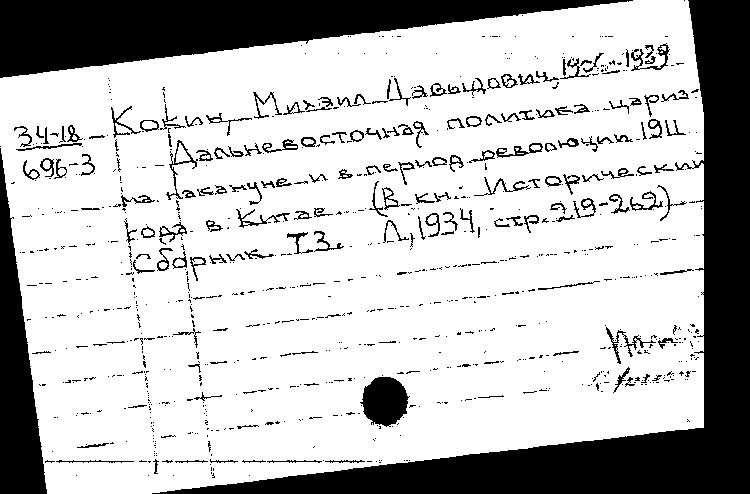 34-18
696-3
Кокин, Михаил Давыдович, -1939
Дальневосточная политика цариз-
ма накануне и в период революции 1911
года в Китае. (В кн.: Исторический
Сборник. Т.3. Л, 1934, стр. 219-262)